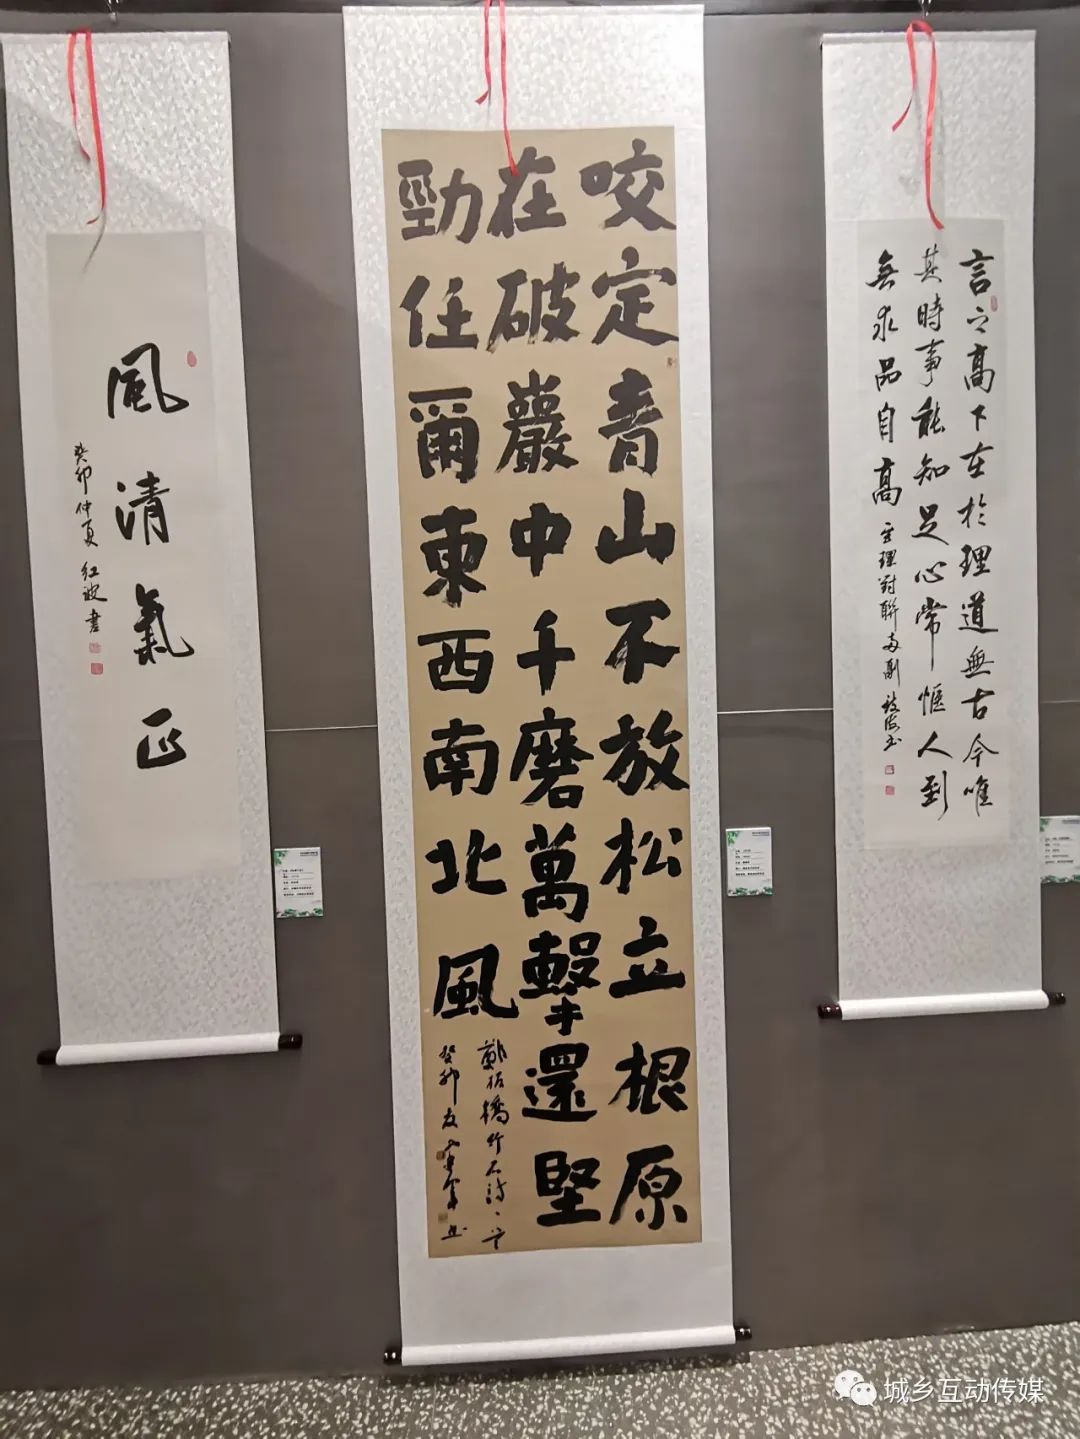 言之高下在於理道無古今唯
其時事能知足心常惬人到
無求品自高
咬定青山不放松立根原
在破巖中千磨萬擊還堅
勁任爾東西南北風
鄭板橋竹石詩
癸卯
風清氣正
癸卯仲夏紅波書
城乡互动传媒